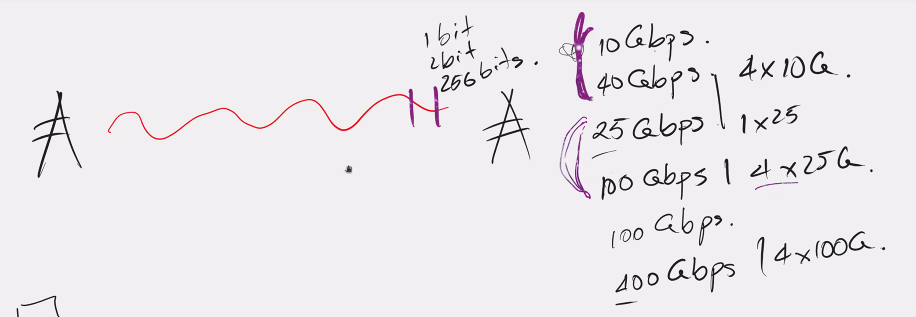 1bit
2bit
256bits.
10Gbps.
40Gbps | 4x10G.
25Gbps | 1x25
100Gbps | 4x25G.
100Gbps.
400Gbps | 4x100G.